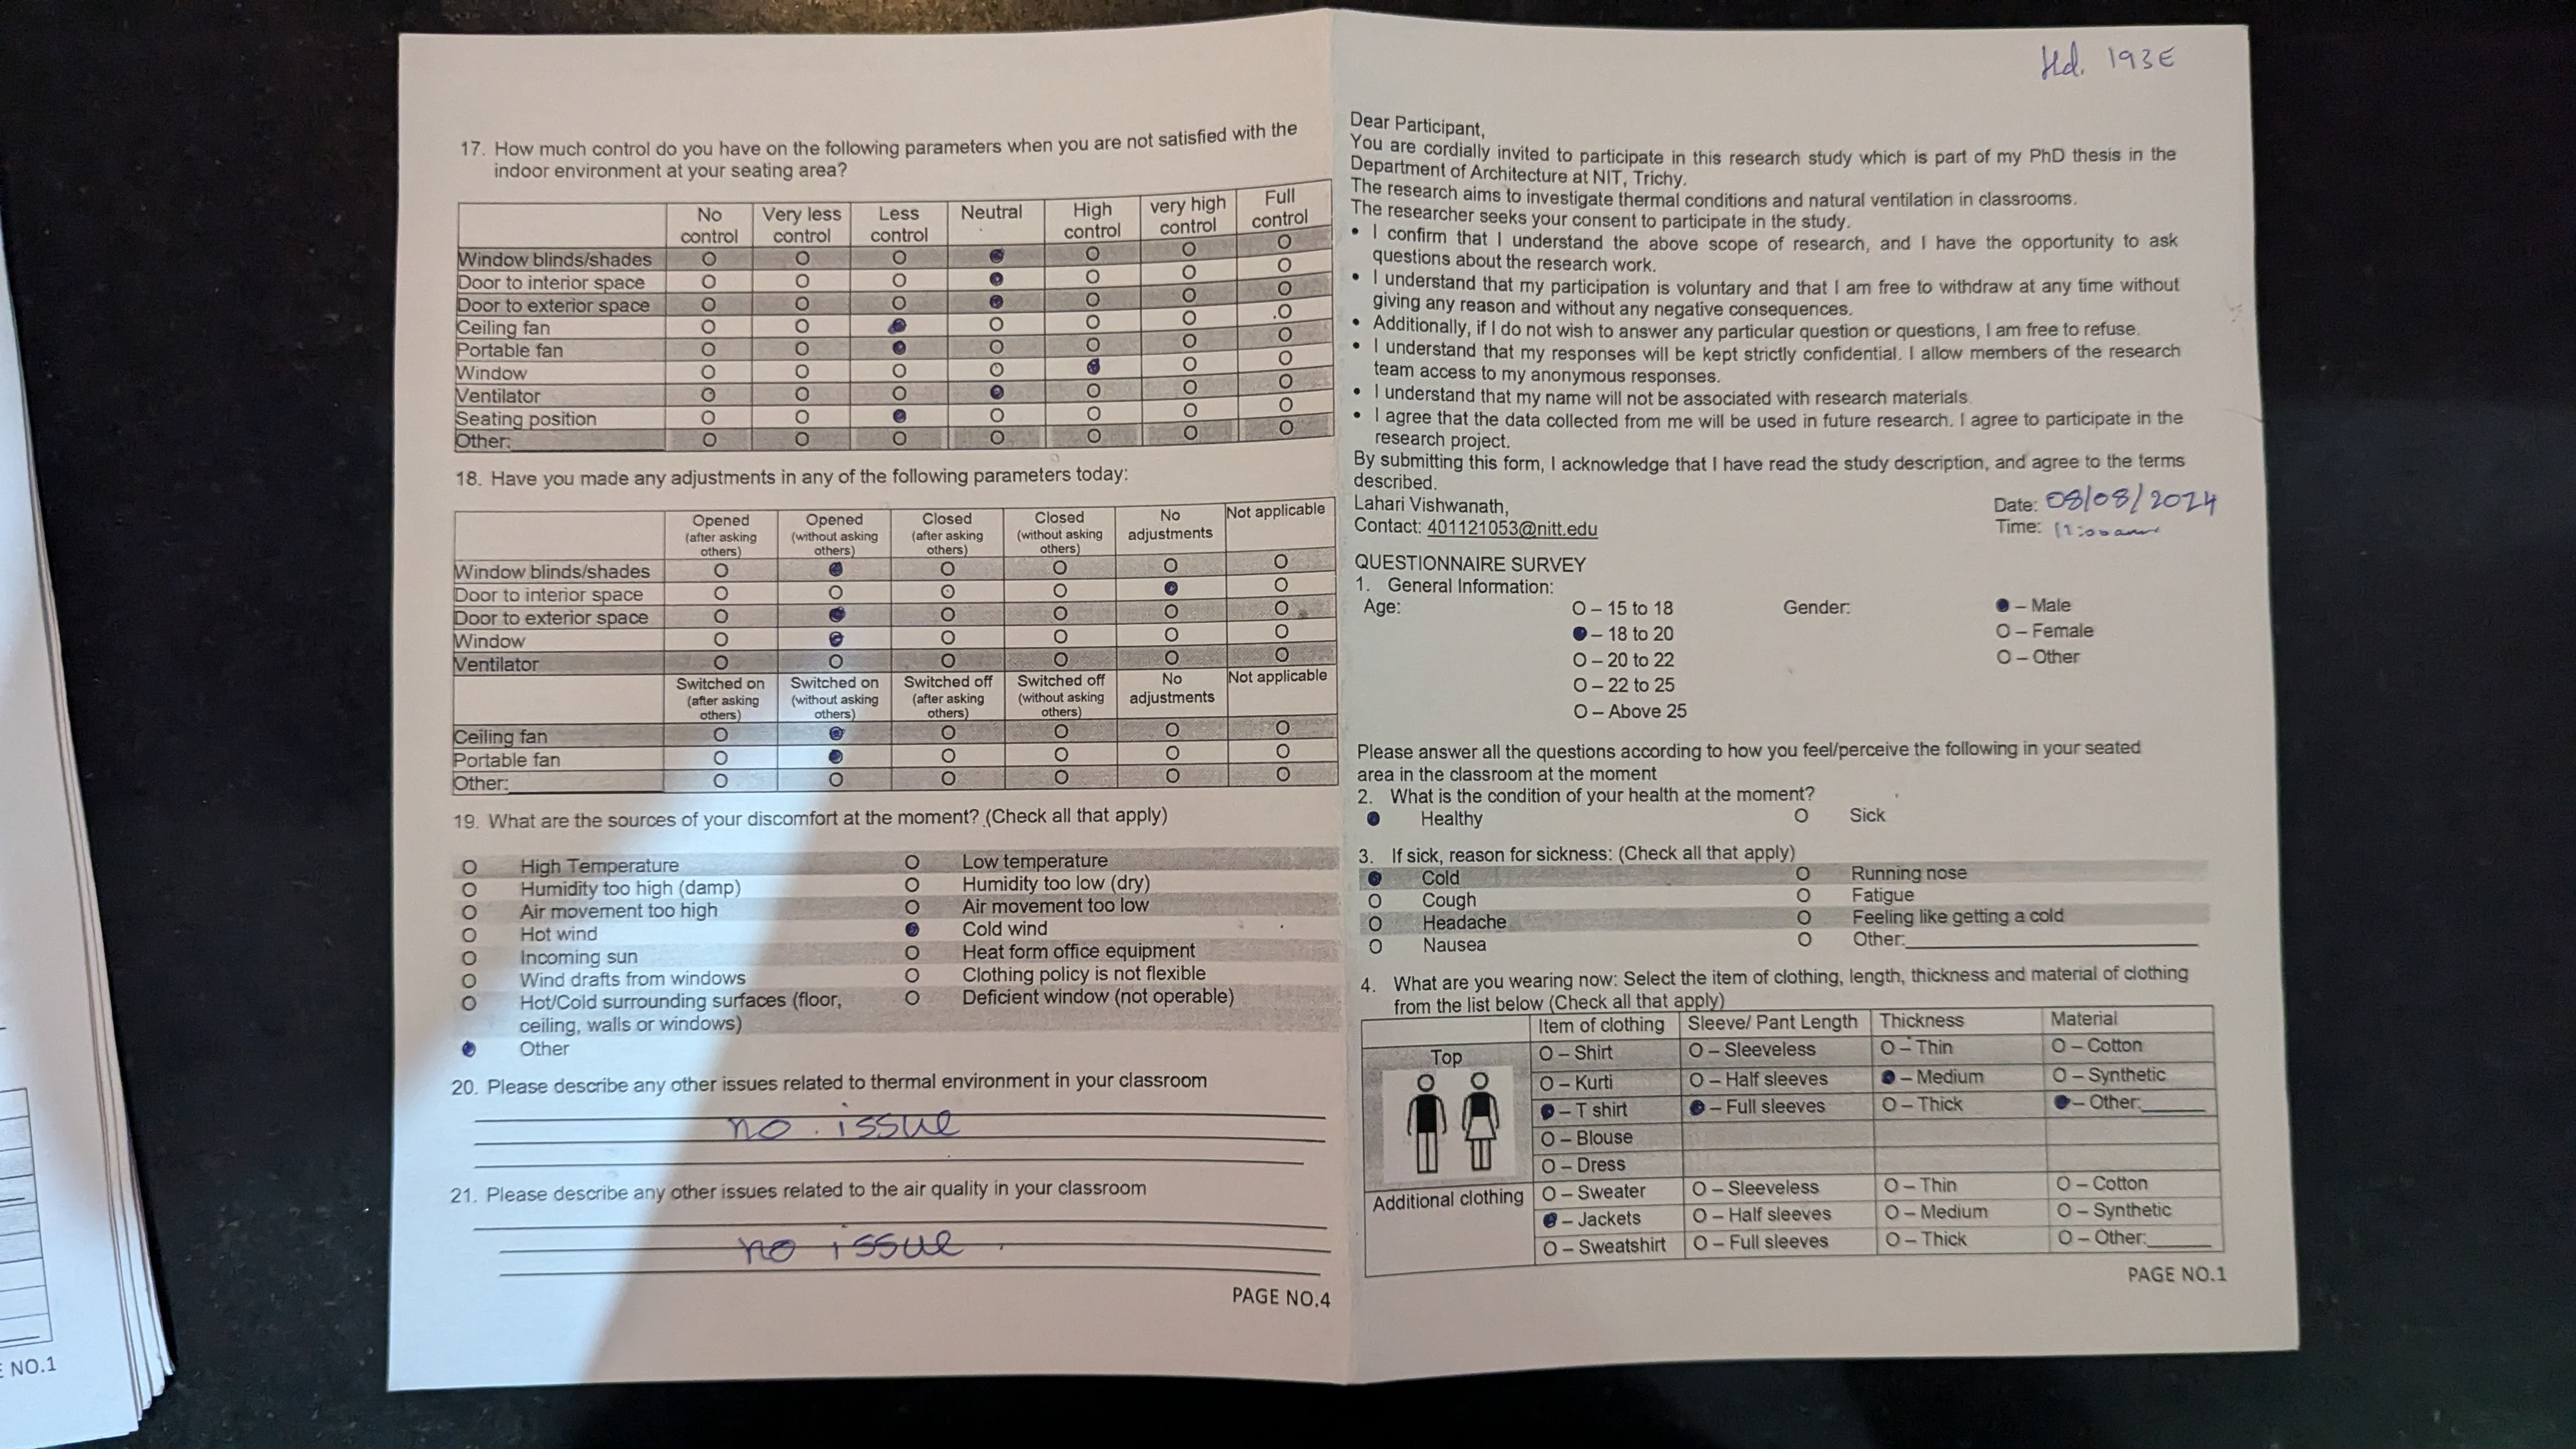 17. How much control do you have on the following parameters when you are not satisfied with the
indoor environment at your seating area?
No control Very less control Less control Neutral High control very high control Full control
Window blinds/shades O O O ● O O O
Door to interior space O O O ● O O O
Door to exterior space O O O ● O O O
Ceiling fan O O ● O O O O
Portable fan O O ● O O O O
Window O O O O ● O O
Ventilator O O O ● O O O
Seating position O O ● O O O O
Other: O O O O O O O
18. Have you made any adjustments in any of the following parameters today:
Opened (after asking others) Opened (without asking others) Closed (after asking others) Closed (without asking others) No adjustments Not applicable
Window blinds/shades O ● O O O O
Door to interior space O O O O ● O
Door to exterior space O ● O O O O
Window O ● O O O O
Ventilator O O O O O O
Switched on (after asking others) Switched on (without asking others) Switched off (after asking others) Switched off (without asking others) No adjustments Not applicable
Ceiling fan O ● O O O O
Portable fan O ● O O O O
Other: O O O O O O
19. What are the sources of your discomfort at the moment? (Check all that apply)
O High Temperature O Low temperature
O Humidity too high (damp) O Humidity too low (dry)
O Air movement too high O Air movement too low
O Hot wind ● Cold wind
O Incoming sun O Heat form office equipment
O Wind drafts from windows O Clothing policy is not flexible
O Hot/Cold surrounding surfaces (floor, O Deficient window (not operable)
ceiling, walls or windows)
● Other
20. Please describe any other issues related to thermal environment in your classroom
no issue
21. Please describe any other issues related to the air quality in your classroom
no issue
PAGE NO.4
193E
Dear Participant,
You are cordially invited to participate in this research study which is part of my PhD thesis in the
Department of Architecture at NIT, Trichy.
The research aims to investigate thermal conditions and natural ventilation in classrooms.
The researcher seeks your consent to participate in the study.
• I confirm that I understand the above scope of research, and I have the opportunity to ask
questions about the research work.
• I understand that my participation is voluntary and that I am free to withdraw at any time without
giving any reason and without any negative consequences.
• Additionally, if I do not wish to answer any particular question or questions, I am free to refuse.
• I understand that my responses will be kept strictly confidential. I allow members of the research
team access to my anonymous responses.
• I understand that my name will not be associated with research materials.
• I agree that the data collected from me will be used in future research. I agree to participate in the
research project.
By submitting this form, I acknowledge that I have read the study description, and agree to the terms
described.
Lahari Vishwanath, Date: 08/08/2024
Contact: 401121053@nitt.edu Time:
QUESTIONNAIRE SURVEY
1. General Information:
Age: O – 15 to 18 Gender: ● – Male
● – 18 to 20 O – Female
O – 20 to 22 O – Other
O – 22 to 25
O – Above 25
Please answer all the questions according to how you feel/perceive the following in your seated
area in the classroom at the moment
2. What is the condition of your health at the moment?
● Healthy O Sick
3. If sick, reason for sickness: (Check all that apply)
● Cold O Running nose
O Cough O Fatigue
O Headache O Feeling like getting a cold
O Nausea O Other:
4. What are you wearing now: Select the item of clothing, length, thickness and material of clothing
from the list below (Check all that apply)
Item of clothing Sleeve/ Pant Length Thickness Material
Top O – Shirt O – Sleeveless O – Thin O – Cotton
O – Kurti O – Half sleeves ● – Medium O – Synthetic
● – T shirt ● – Full sleeves O – Thick ● – Other:
O – Blouse
O – Dress
Additional clothing O – Sweater O – Sleeveless O – Thin O – Cotton
● – Jackets O – Half sleeves O – Medium O – Synthetic
O – Sweatshirt O – Full sleeves O – Thick O – Other:
PAGE NO.1
NO.1